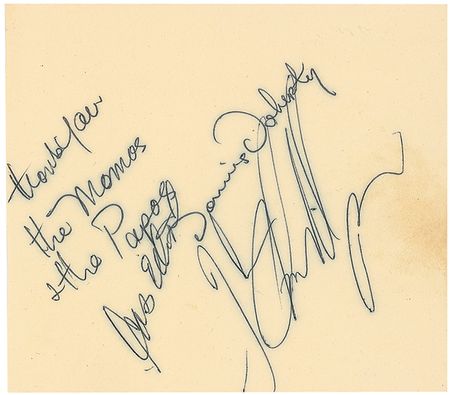 thank you
the Mamas
& the Papas
Cass Elliot
Dennis Doherty